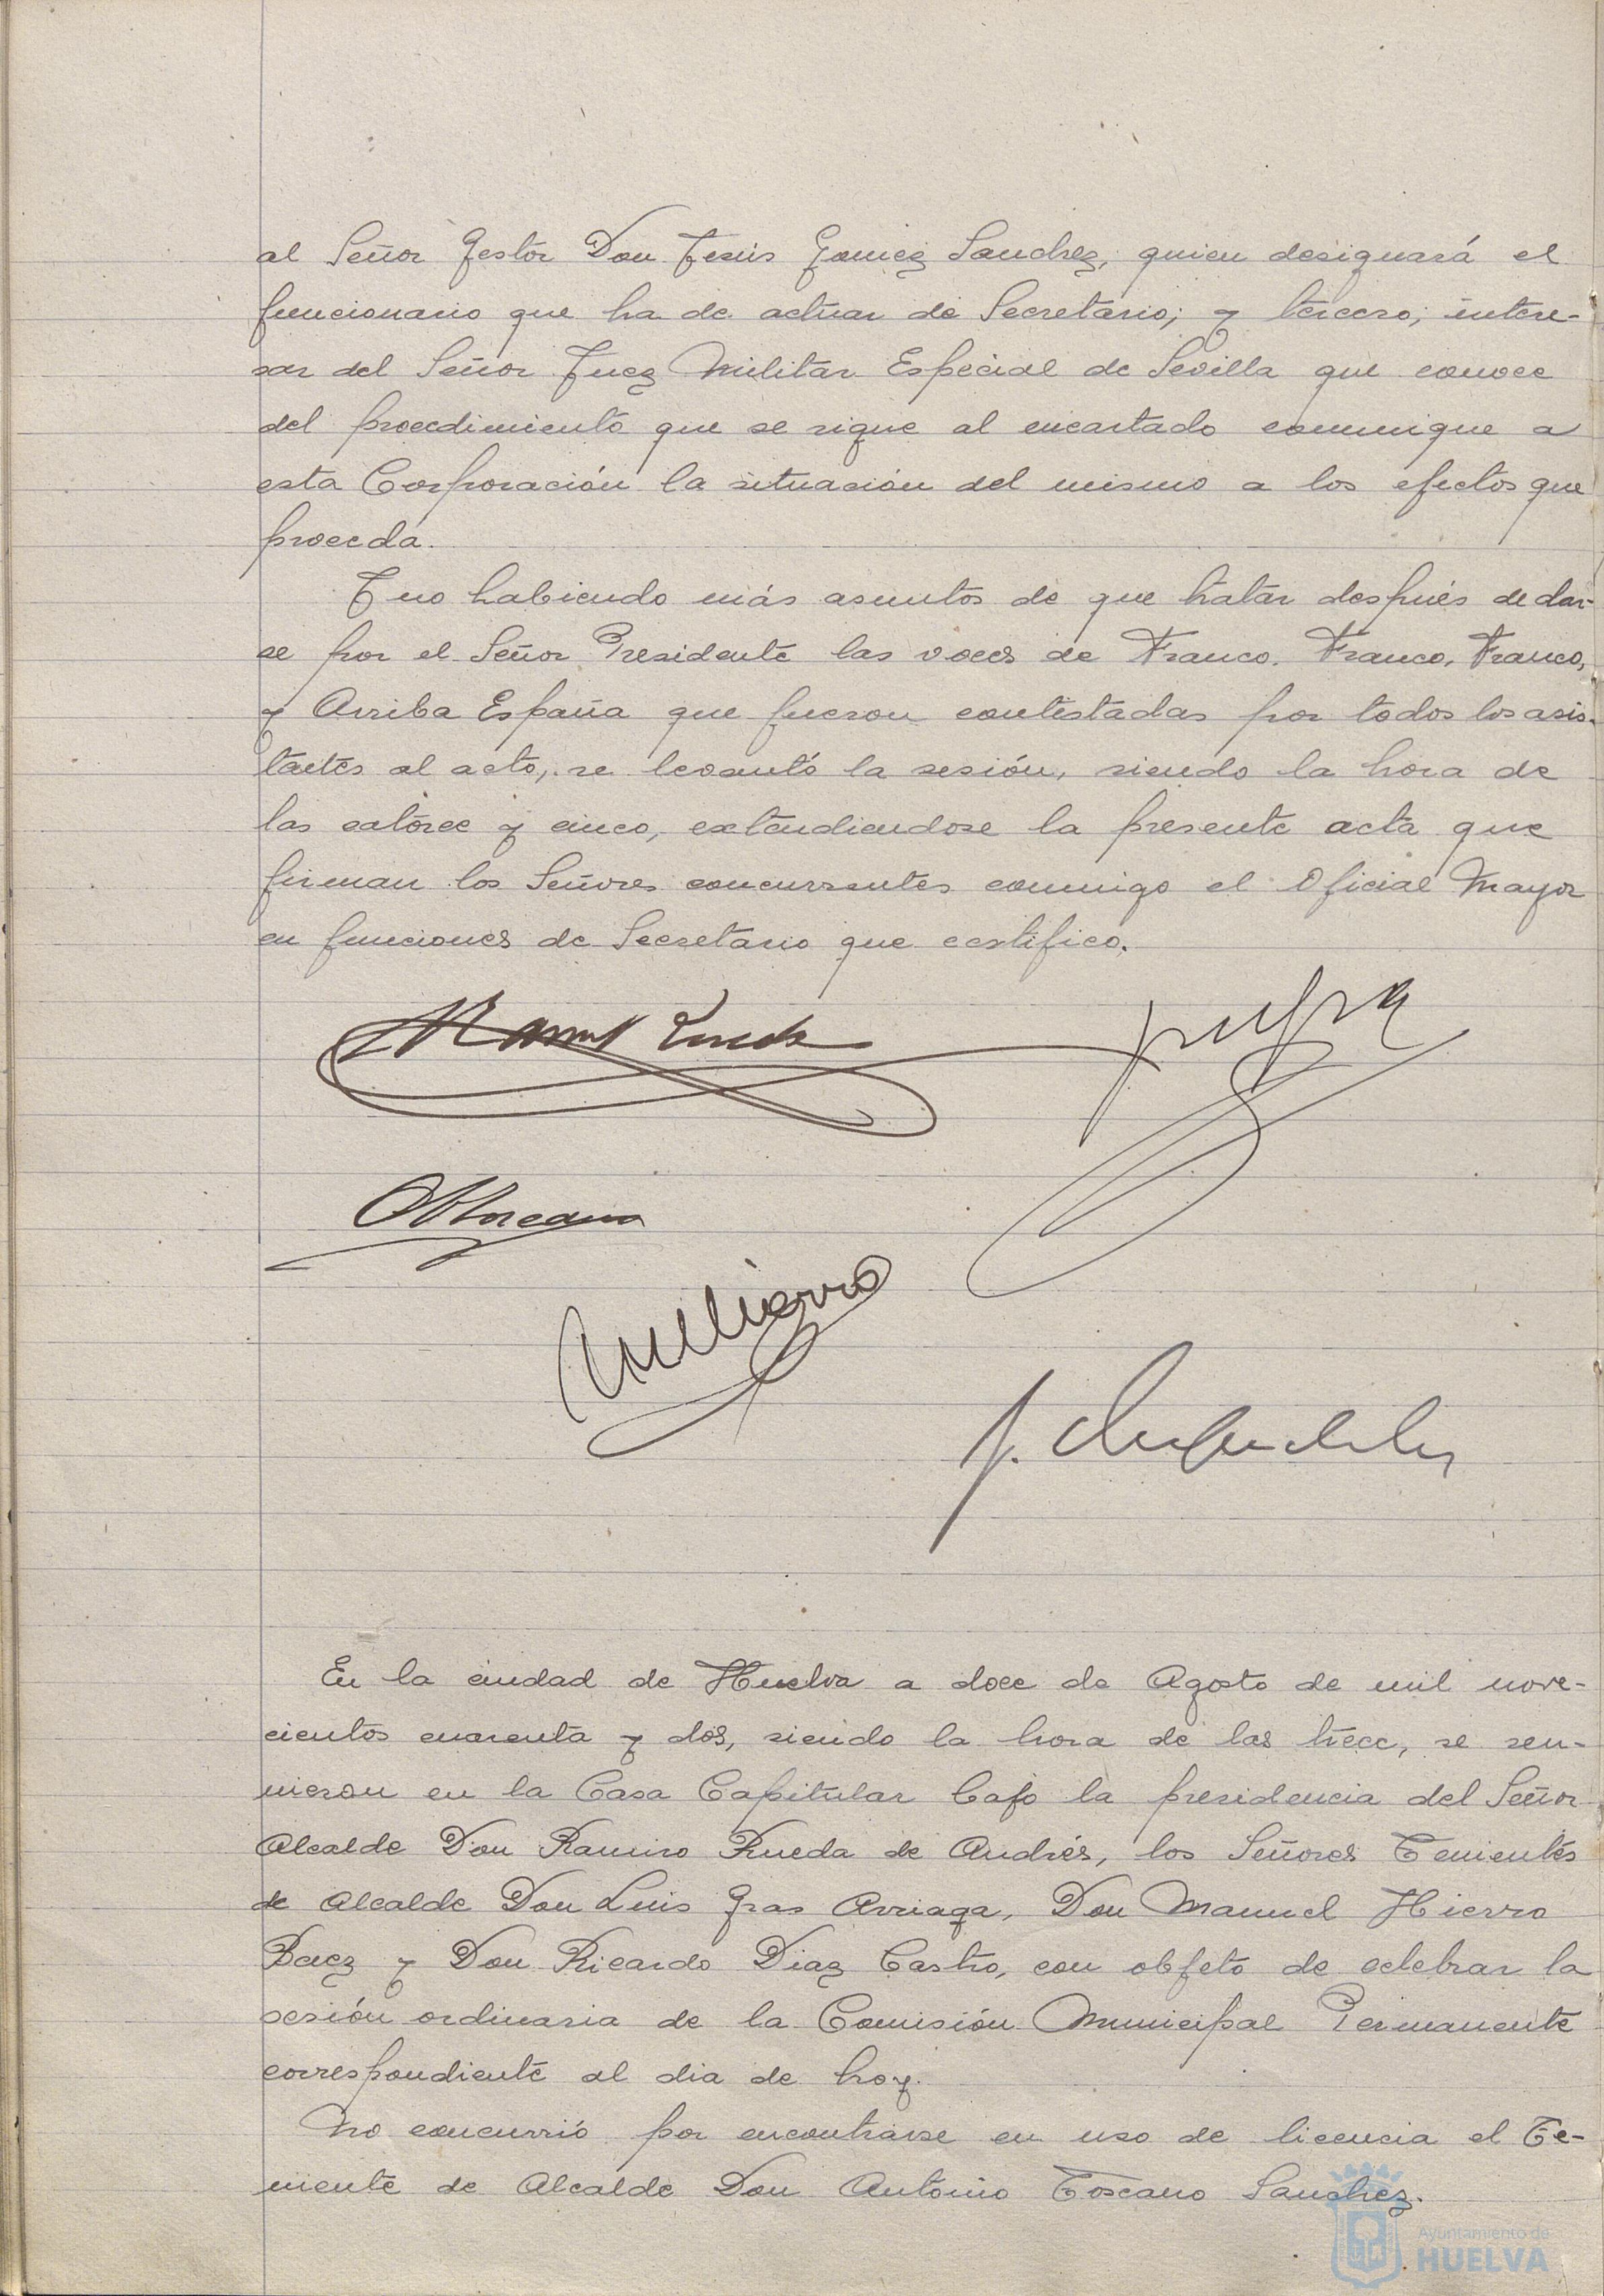 al Señor Gestor Don Jesús Gomez Sanchez, quien designará el
funcionario que ha de actuar de Secretario; y tercero; intere-
sar del Señor Juez Militar Especial de Sevilla que conoce
del procedimiento que se sigue al encartado comunique a
esta Corporación la situación del mismo a los efectos que
proceda.
Y no habiendo más asuntos de que tratar después de dar-
se por el Señor Presidente las voces de Franco. Franco, Franco,
y Arriba España que fueron contestadas por todos los asis-
tentes al acto, se levantó la sesión, siendo la hora de
las catorce y cinco, extendiendose la presente acta que
firman los Señores concurrentes conmigo el Oficial Mayor
en funciones de Secretario que certifico.
Rueda
AToscano
MHierro
En la ciudad de Huelva a doce de Agosto de mil nove-
cientos cuarenta y dos, siendo la hora de las trece, se reu-
nieron en la Casa Capitular bajo la presidencia del Señor
Alcalde Don Ramiro Rueda de Andrés, los Señores Tenientes
de Alcalde Don Luis Gras Arriaga, Don Manuel Hierro
Baez y Don Ricardo Diaz Castro, con objeto de celebrar la
sesión ordinaria de la Comisión Municipal Permanente
correspondiente al dia de hoy.
No concurrió por encontrarse en uso de licencia el Te-
niente de Alcalde Don Antonio Toscano Sanchez.
Ayuntamiento de
HUELVA